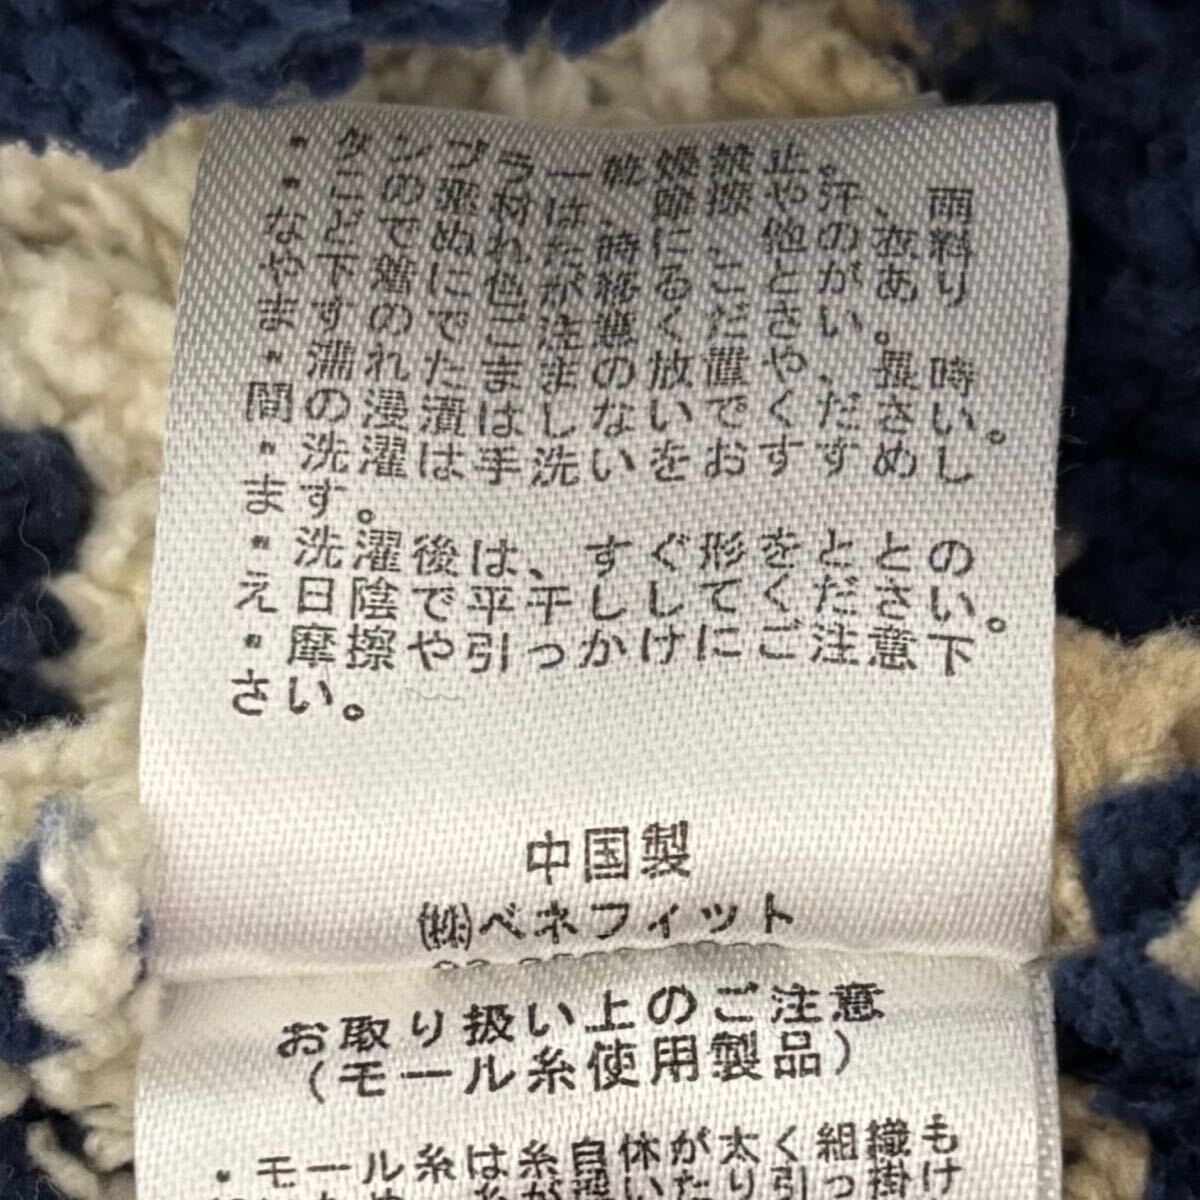 ・タンブラー乾燥禁止。
・この素材は、摩擦や汗、雨
などで濡れた時に他の衣料
やに色が移ることがあり
ます下着のでご注意ください。
・濡れたままの放置や、長時
間の浸漬はしないでください。
・洗濯は手洗いをおすすめし
ます。
・洗濯後は、すぐ形をととの
え日陰で平干ししてください。
・摩擦や引っかけにご注意下
さい。
中国製
㈱ベネフィット
お取り扱い上のご注意
(モール糸使用製品)
・モール糸は糸自体が太く組織も